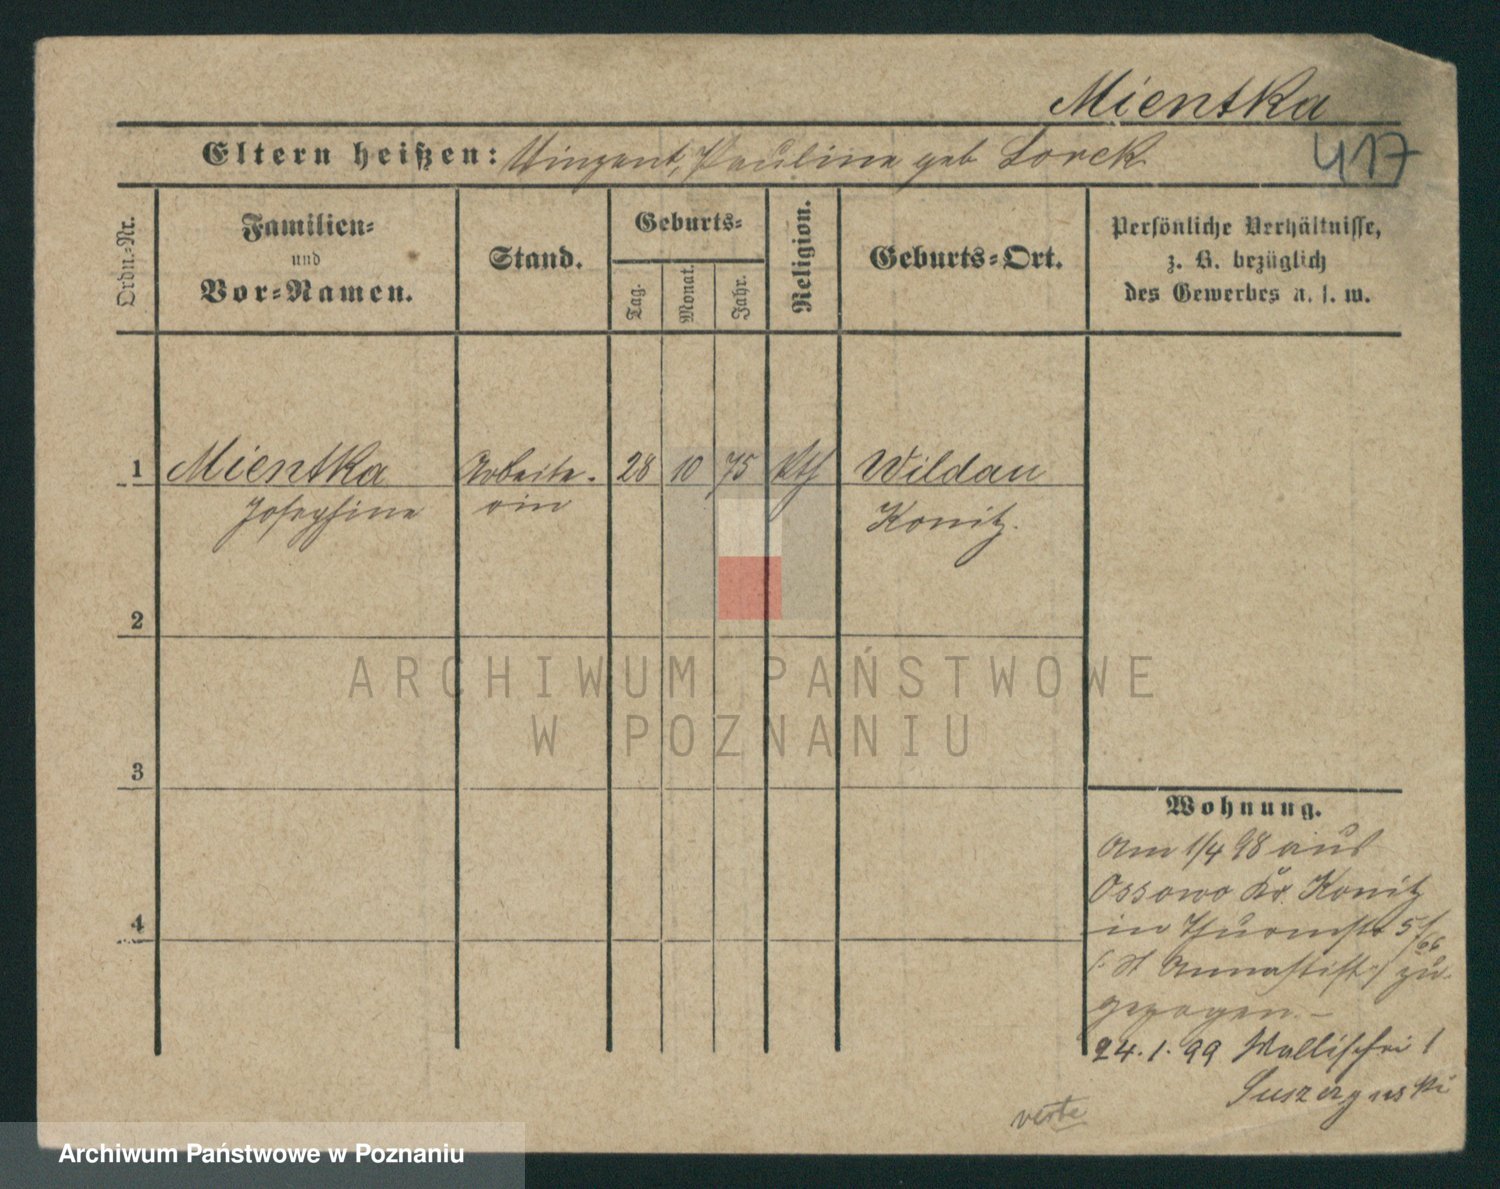 Mientka
417
Eltern heißen: Vinzent, Pauline geb Lorek
Ordn.-Nr.
Familien-
und
Vor-Namen.
Stand.
Geburts-
Tag.
Monat.
Jahr.
Religion.
Geburts-Ort.
Persönliche Verhältnisse,
z. B. bezüglich
des Gewerbes u. s. w.
1 Mientka Arbeite- 28 10 75 kth Wildau
Josephine rin Konitz.
2
3
4
Wohnung.
Am 1/4 98 aus
Ossowo Kr. Konitz
in Thurmstr 5/66
(: St Annastift :) zu-
gezogen. –
24.1.99 Wallischei 1
verte
ARCHIWUM PAŃSTWOWE
W POZNANIU
Archiwum Państwowe w Poznaniu